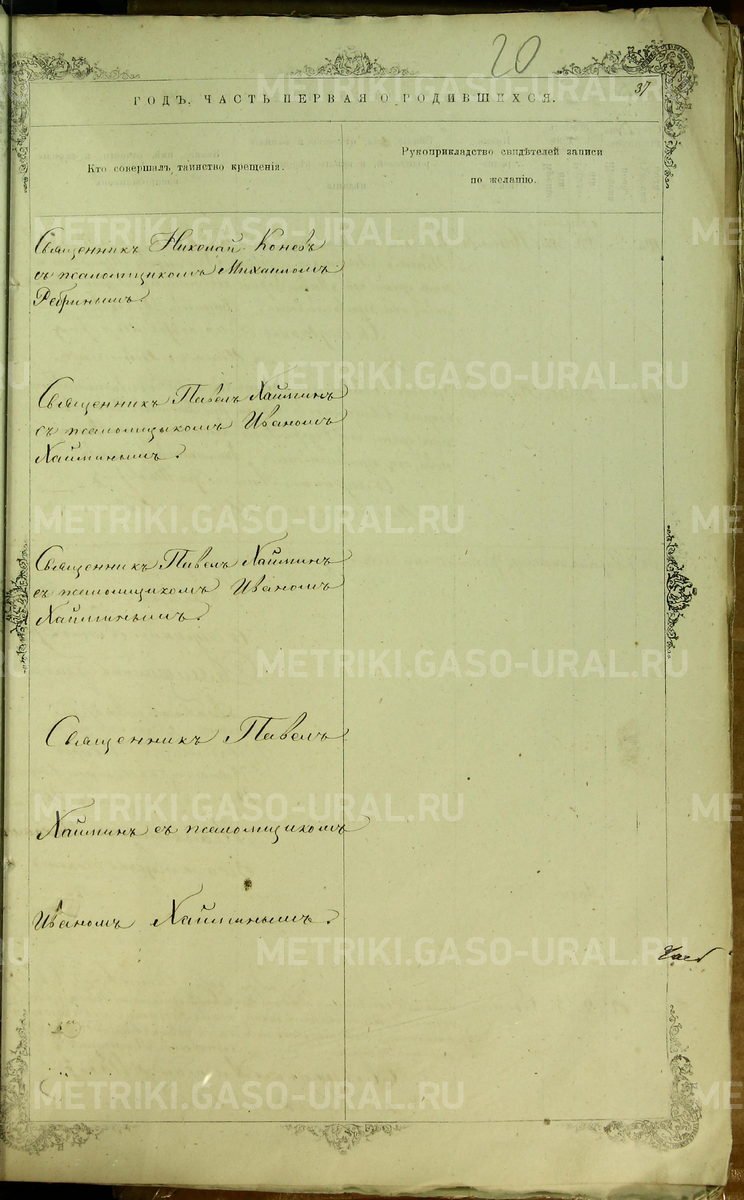 20
37
ГОДЪ, ЧАСТЬ ПЕРВАЯ О РОДИВШИХСЯ.
Кто совершалъ таинство крещенія.
Рукоприкладство свидѣтелей записи
по желанію.
Священникъ Николай Коневъ
съ псаломщикомъ Михаиломъ
Ребринымъ.
Священникъ Павелъ Хайминъ
съ псаломщикомъ Иваномъ
Хайминымъ.
Священникъ Павелъ Хайминъ
съ псаломщикомъ Иваномъ
Хайминымъ.
Священникъ Павелъ
Хайминъ съ псаломщикомъ
Иваномъ Хайминымъ.
METRIKI.GASO-URAL.RU